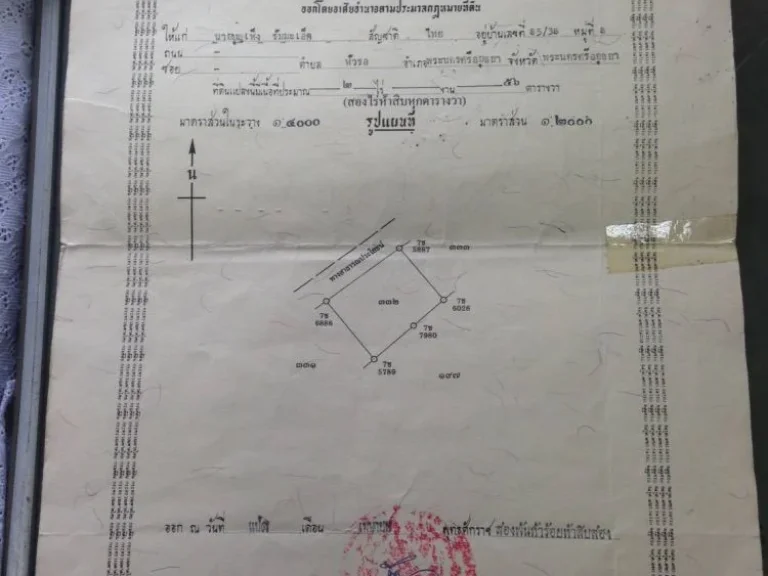 ออกโดยอาศัยอำนาจตามประมวลกฎหมายที่ดิน
ให้แก่ สัญชาติ ไทย อยู่บ้านเลขที่ 83/36 หมู่ที่
ถนน
ซอย ตำบล หัวรอ อำเภอพระนครศรีอยุธยา จังหวัด พระนครศรีอยุธยา
ที่ดินแปลงนี้มีเนื้อที่ประมาณ ๒ ไร่ งาน ๕๖ ตารางวา
(สองไร่ห้าสิบหกตารางวา)
มาตราส่วนในระวาง ๑:๔๐๐๐ รูปแผนที่ มาตราส่วน ๑:๒๐๐๐
น
ทางสาธารณประโยชน์
7ช
5887
๓๓๓
๓๓๒
7ช
6886
7ช
6026
7ช
7960
7ช
5789
๓๓๑
๑๙๗
ออก ณ วันที่ แปด เดือน พุทธศักราช สองพันห้าร้อยห้าสิบสอง